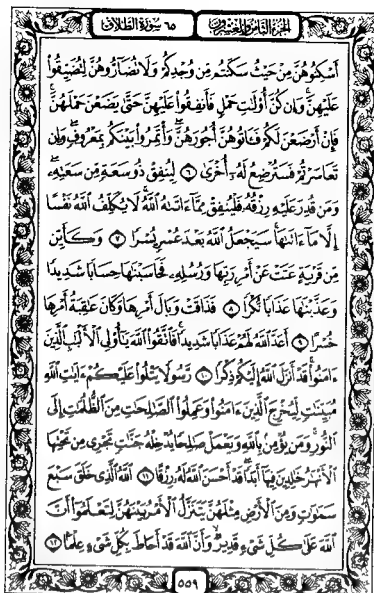 الجزء الثامن والعشرون ٦٥ سورة الطلاق
أَسْكِنُوهُنَّ مِنْ حَيْثُ سَكَنتُم مِّن وُجْدِكُمْ وَلَا تُضَآرُّوهُنَّ لِتُضَيِّقُوا۟
عَلَيْهِنَّ ۚ وَإِن كُنَّ أُو۟لَـٰتِ حَمْلٍ فَأَنفِقُوا۟ عَلَيْهِنَّ حَتَّىٰ يَضَعْنَ حَمْلَهُنَّ ۚ
فَإِنْ أَرْضَعْنَ لَكُمْ فَـَٔاتُوهُنَّ أُجُورَهُنَّ ۖ وَأْتَمِرُوا۟ بَيْنَكُم بِمَعْرُوفٍ ۖ وَإِن
تَعَاسَرْتُمْ فَسَتُرْضِعُ لَهُۥٓ أُخْرَىٰ ٦ لِيُنفِقْ ذُو سَعَةٍ مِّن سَعَتِهِۦ ۖ
وَمَن قُدِرَ عَلَيْهِ رِزْقُهُۥ فَلْيُنفِقْ مِمَّآ ءَاتَىٰهُ ٱللَّهُ ۚ لَا يُكَلِّفُ ٱللَّهُ نَفْسًا
إِلَّا مَآ ءَاتَىٰهَا ۚ سَيَجْعَلُ ٱللَّهُ بَعْدَ عُسْرٍ يُسْرًا ٧ وَكَأَيِّن
مِّن قَرْيَةٍ عَتَتْ عَنْ أَمْرِ رَبِّهَا وَرُسُلِهِۦ فَحَاسَبْنَـٰهَا حِسَابًا شَدِيدًا
وَعَذَّبْنَـٰهَا عَذَابًا نُّكْرًا ٨ فَذَاقَتْ وَبَالَ أَمْرِهَا وَكَانَ عَـٰقِبَةُ أَمْرِهَا
خُسْرًا ٩ أَعَدَّ ٱللَّهُ لَهُمْ عَذَابًا شَدِيدًا ۖ فَٱتَّقُوا۟ ٱللَّهَ يَـٰٓأُو۟لِى ٱلْأَلْبَـٰبِ ٱلَّذِينَ
ءَامَنُوا۟ ۚ قَدْ أَنزَلَ ٱللَّهُ إِلَيْكُمْ ذِكْرًا ١٠ رَّسُولًا يَتْلُوا۟ عَلَيْكُمْ ءَايَـٰتِ ٱللَّهِ
مُبَيِّنَـٰتٍ لِّيُخْرِجَ ٱلَّذِينَ ءَامَنُوا۟ وَعَمِلُوا۟ ٱلصَّـٰلِحَـٰتِ مِنَ ٱلظُّلُمَـٰتِ إِلَى
ٱلنُّورِ ۚ وَمَن يُؤْمِنۢ بِٱللَّهِ وَيَعْمَلْ صَـٰلِحًا يُدْخِلْهُ جَنَّـٰتٍ تَجْرِى مِن تَحْتِهَا
ٱلْأَنْهَـٰرُ خَـٰلِدِينَ فِيهَآ أَبَدًا ۖ قَدْ أَحْسَنَ ٱللَّهُ لَهُۥ رِزْقًا ١١ ٱللَّهُ ٱلَّذِى خَلَقَ سَبْعَ
سَمَـٰوَٰتٍ وَمِنَ ٱلْأَرْضِ مِثْلَهُنَّ يَتَنَزَّلُ ٱلْأَمْرُ بَيْنَهُنَّ لِتَعْلَمُوٓا۟ أَنَّ
ٱللَّهَ عَلَىٰ كُلِّ شَىْءٍ قَدِيرٌ وَأَنَّ ٱللَّهَ قَدْ أَحَاطَ بِكُلِّ شَىْءٍ عِلْمًۢا ١٢
٥٥٩